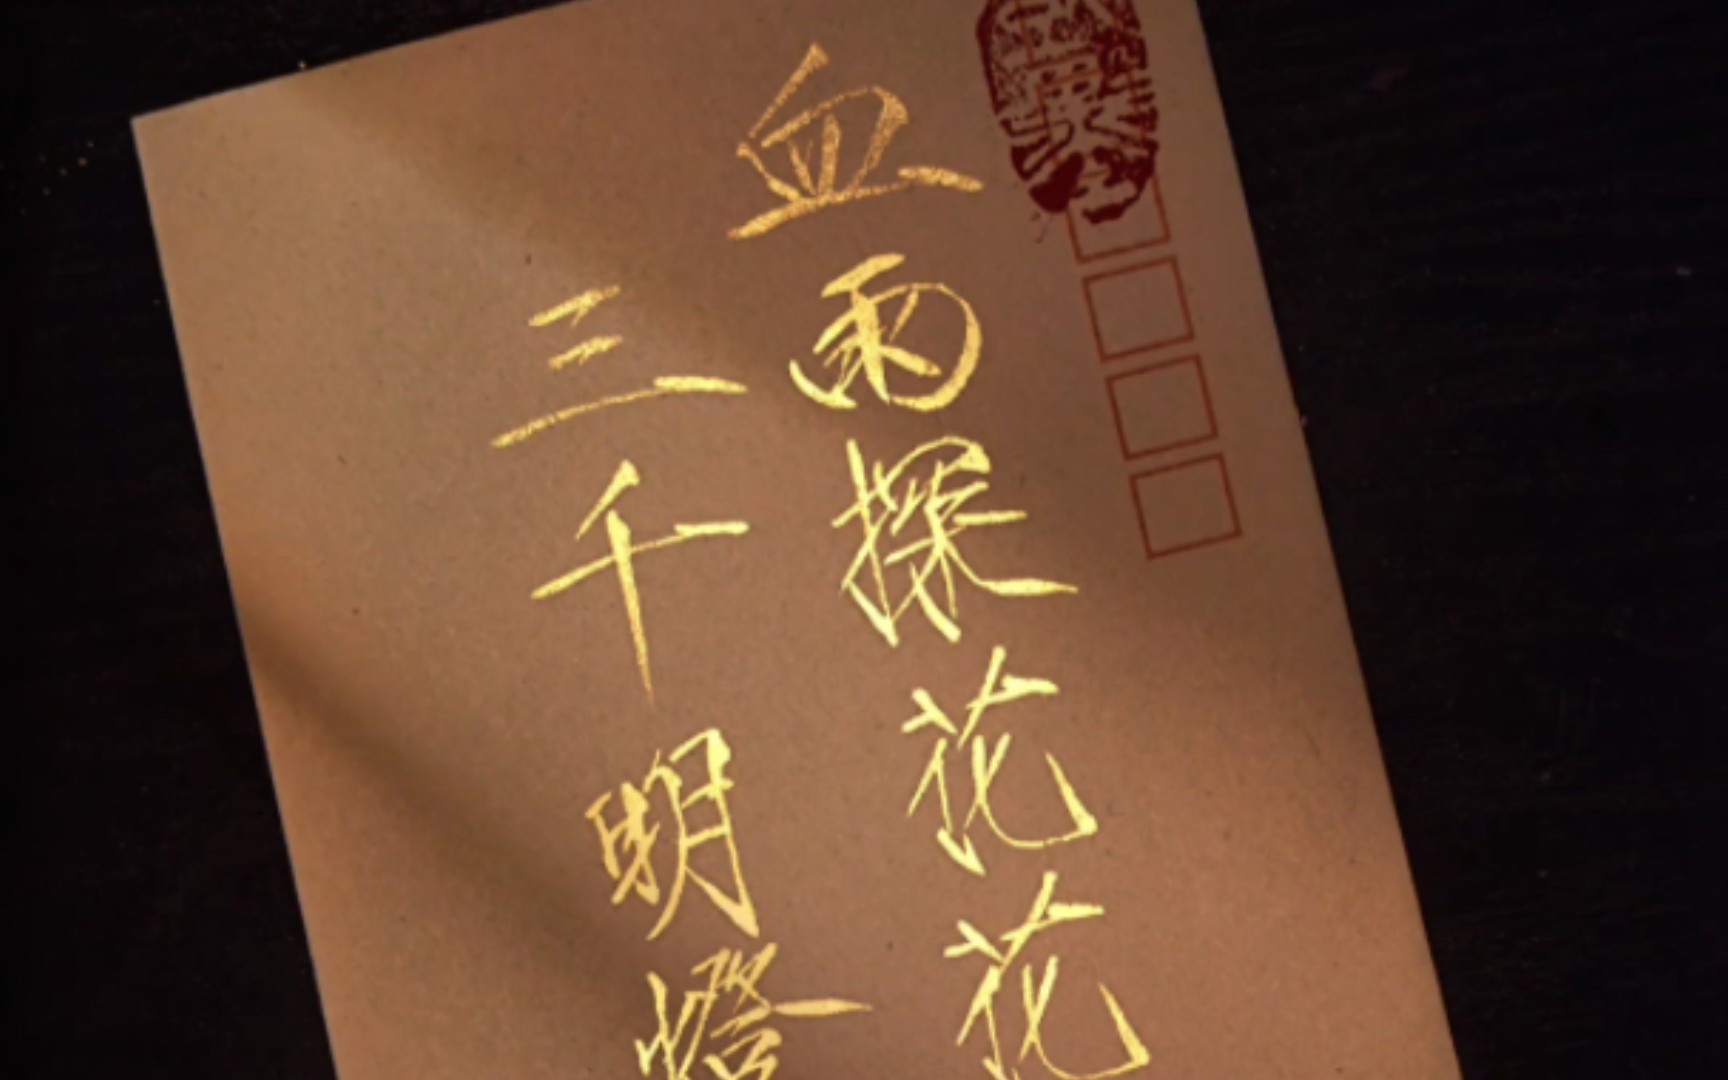 血雨探花花
三千明燈